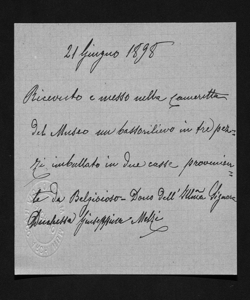 21 Giugno 1898
Ricevuto e messo nella cameretta
del Museo un bassorilievo in tre pez=
zi imballato in due casse provenien=
te da Belgioioso - Dono dell'Illma Signora
Duchessa Giuseppina Melzi